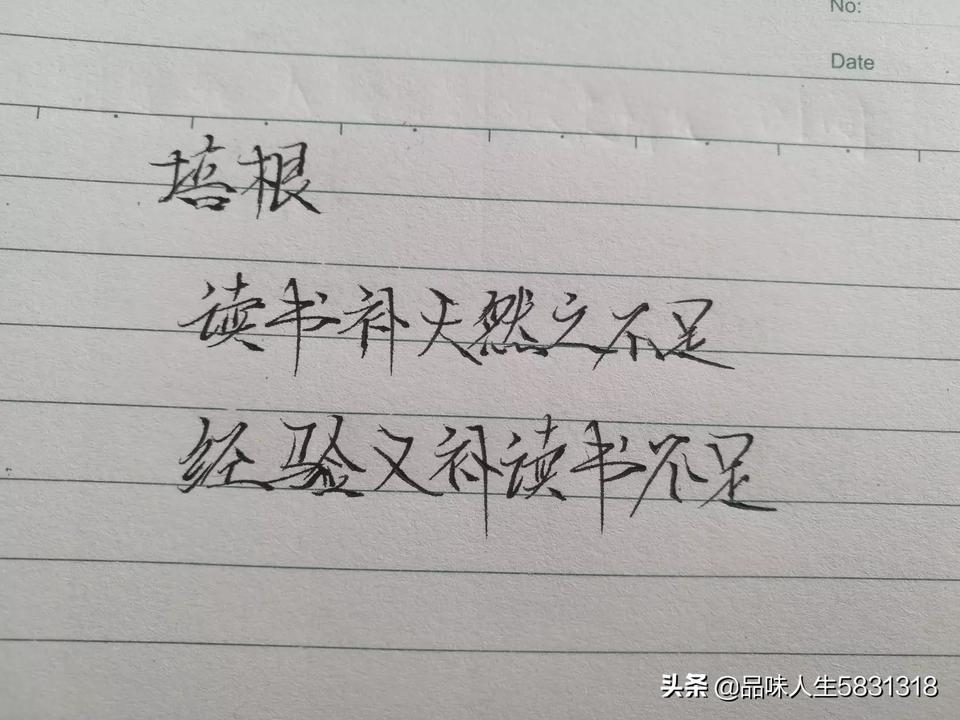 No:
Date
培根
读书补天然之不足
经验又补读书不足
头条 @品味人生5831318